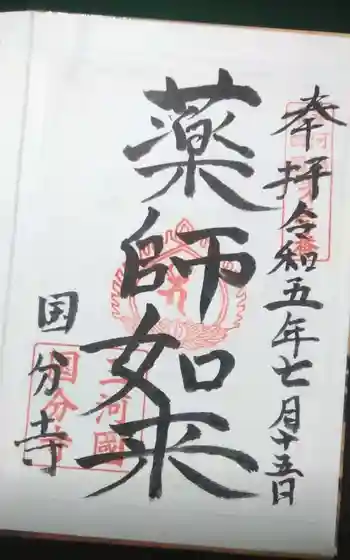 奉拝令和五年七月十五日
薬師如来
国分寺
三河國
国分寺